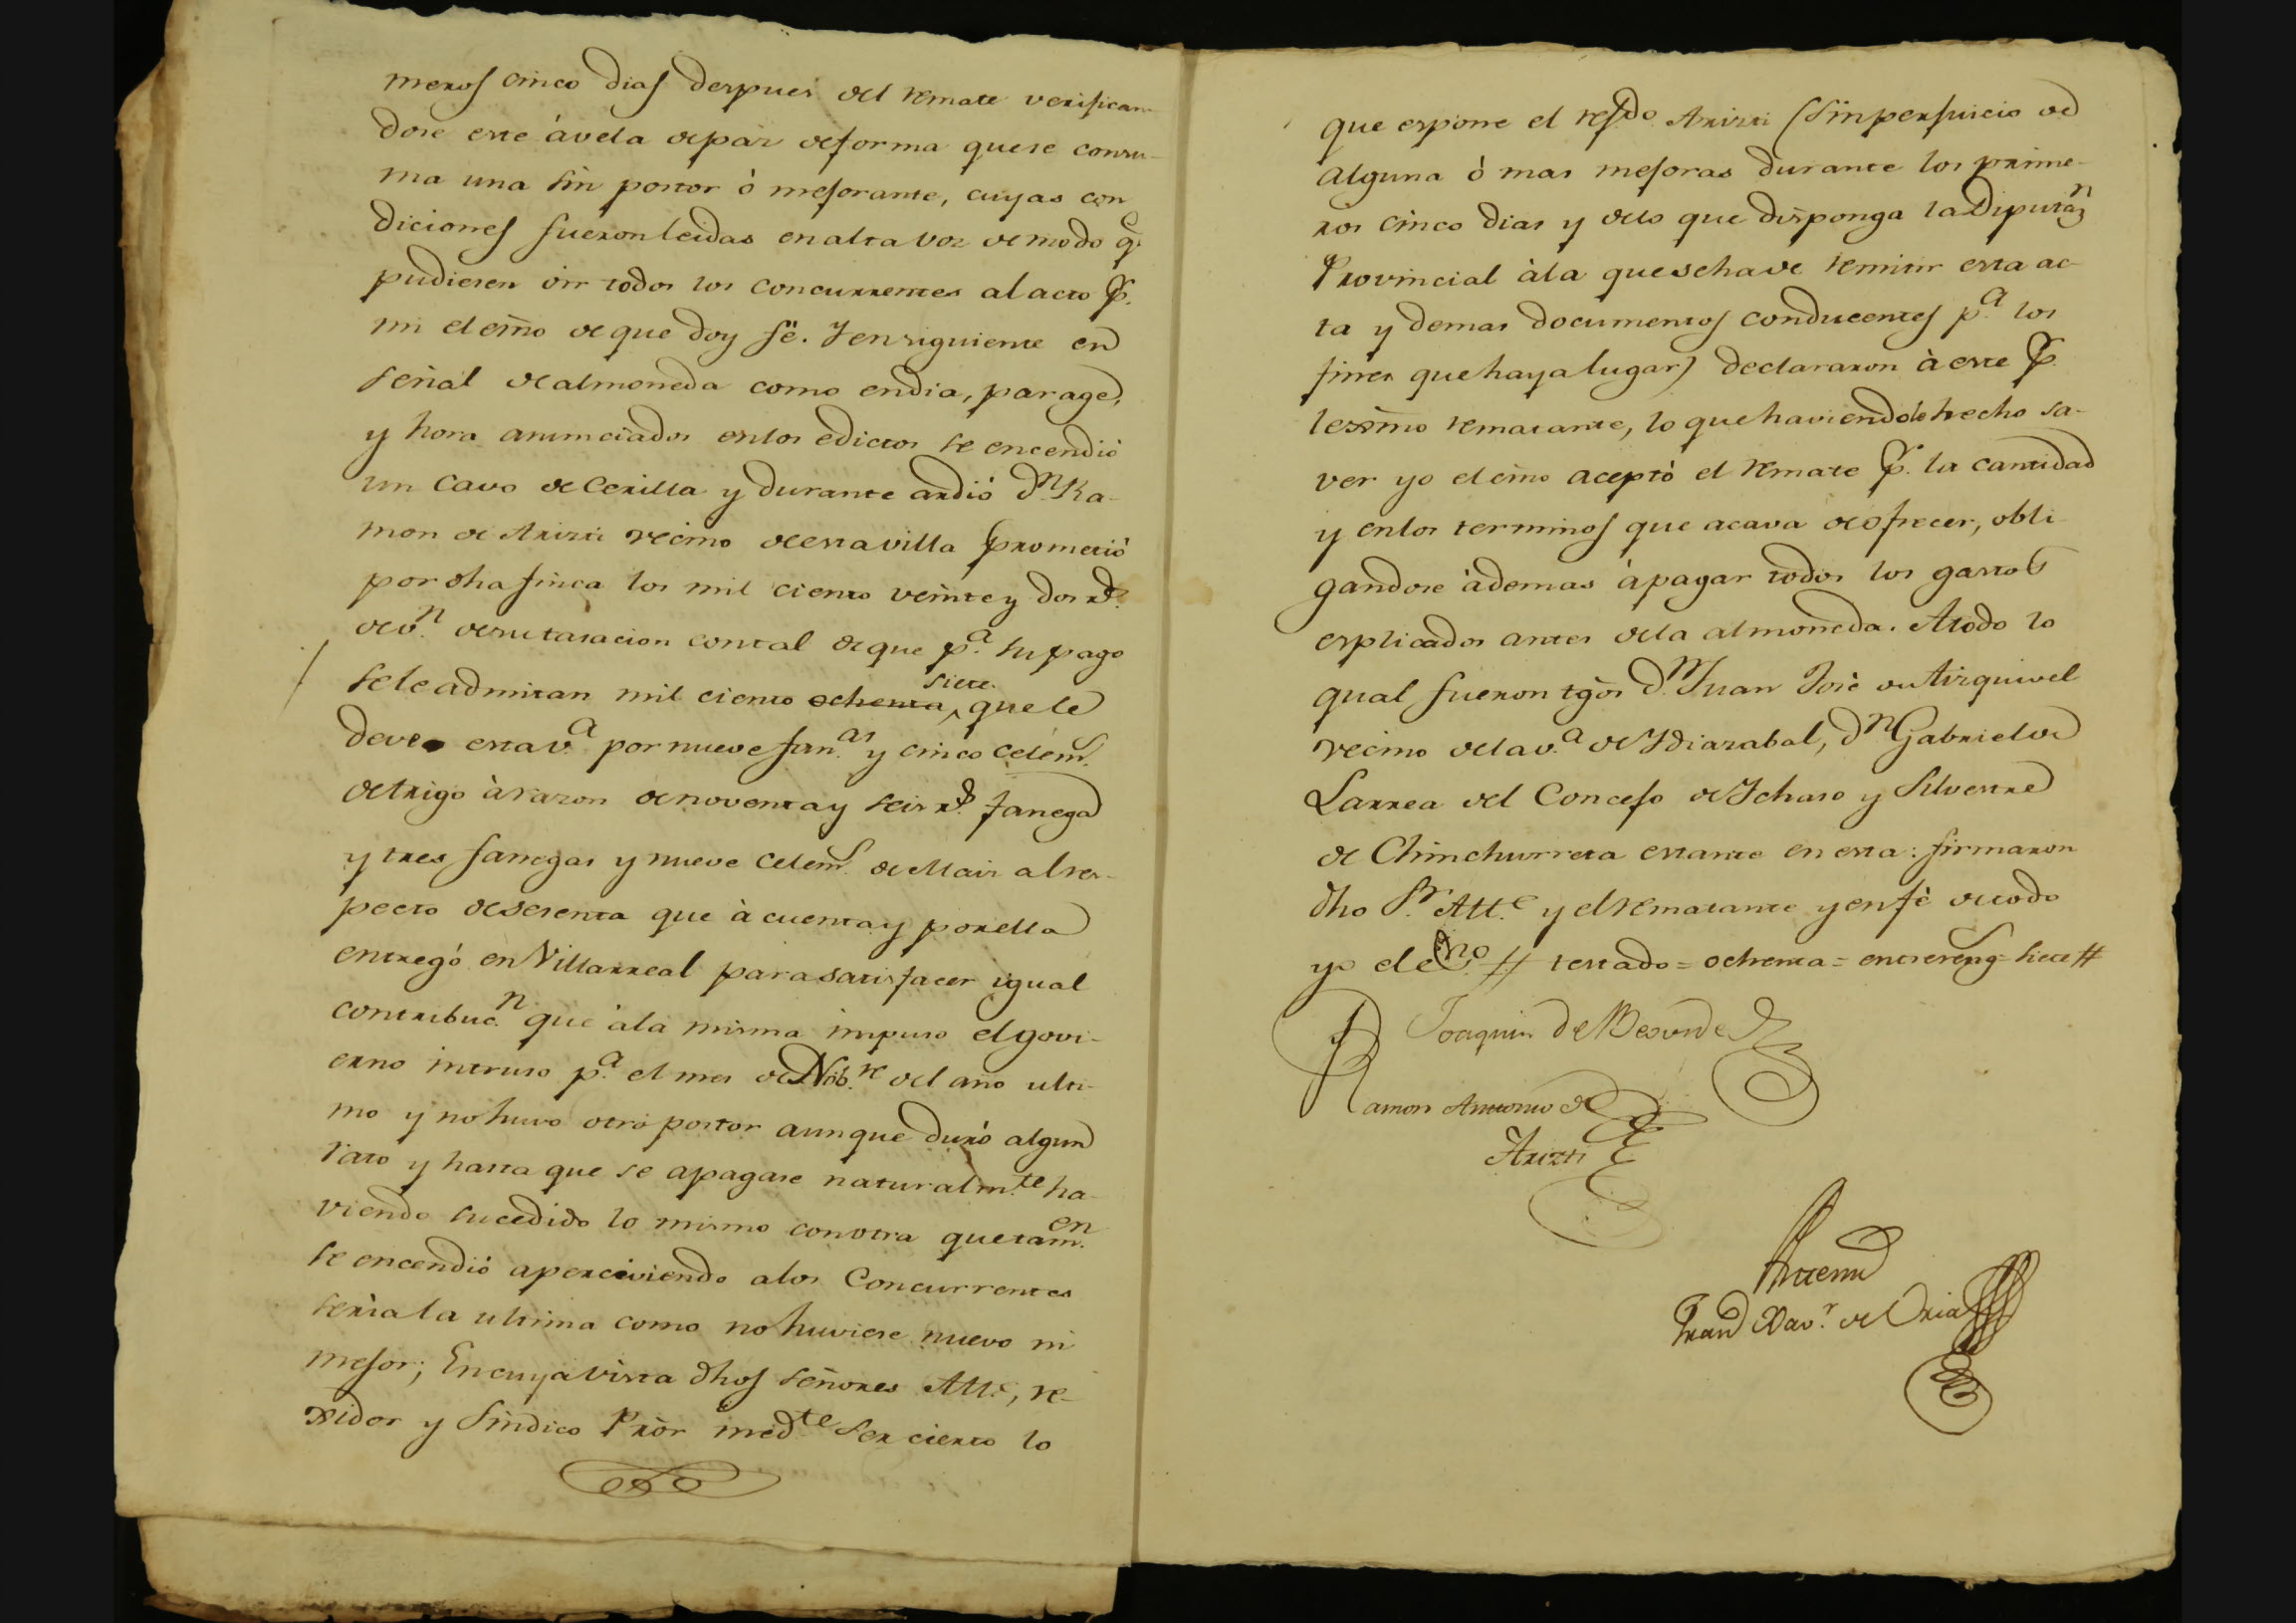 meros cinco dias despues del remate verifican-
dose este á vela de par de forma que se consu-
ma una sin postor ó mejorante, cuyas con
diciones fueron leidas en alta voz de modo q.e
pudiesen oir todos los concurrentes al acto p.r
mi el essno de que doy fê. Y en siguiente en
señal de almoneda como en dia, parage,
y hora anunciados en los edictos se encendió
un cavo de cerilla y durante ardió d.n Ra-
mon de Arizti vecino de esta villa prometió
por dha finca los mil ciento veinte y dos r.s
de v.n de su tasacion con tal de que p.a su pago
se le admitan mil ciento ochenta siete que le
deve esta v.a por nueve fan.as y cinco celem.s
de trigo à razon de noventa y seis r.s fanega
y tres fanegas y nueve celem.s de Maiz al res-
pecto de sesenta que à cuenta y por ella
entregó en Villarreal para satisfacer igual
contribuc.n que à la misma impuso el govi-
erno intruso p.a el mes de Nob.re del año ulti-
mo y no huvo otro postor aunque duró algun
rato y hasta que se apagase naturalm.te ha-
viendo sucedido lo mismo con otra que tam.en
se encendió aperciviendo a los Concurrentes
seria la ultima como no huviese nuevo ni
mejor; En cuya vista dhos señores Alt.e, re-
xidor y Sindico Prôr med.te ser cierto lo
que espone el resdo. Arizti (sin perjuicio de
alguna ò mas mejoras durante los prime-
ros cinco dias y de lo que disponga la Diputaz.n
Provincial à la que se ha de remitir esta ac-
ta y demas documentos conducentes p.a los
fines que haya lugar) declararon à este p.r
lexmo rematante, lo que haviendole hecho sa-
ver yo el essno aceptò el remate p.r la cantidad
y en los terminos que acava de ofrecer, obli
gandose àdemas à pagar todos los gastos
esplicados antes de la almoneda. A todo lo
qual fueron tgôs d.n Juan Josè de Aizquivel
vecino de la v.a de Ydiazabal, d.n Gabriel de
Larrea del Concejo de Ychaso y Silvestre
de Chinchurreta estante en esta: firmaron
dho S.r Alt.e y el rematante y en fè de todo
yo el es.no // testado = ochenta = entrereng.s siete #
Joaquin de
Ramon Antonio de
Arizti
Ante mi
Fran.co Xav.r de Oria